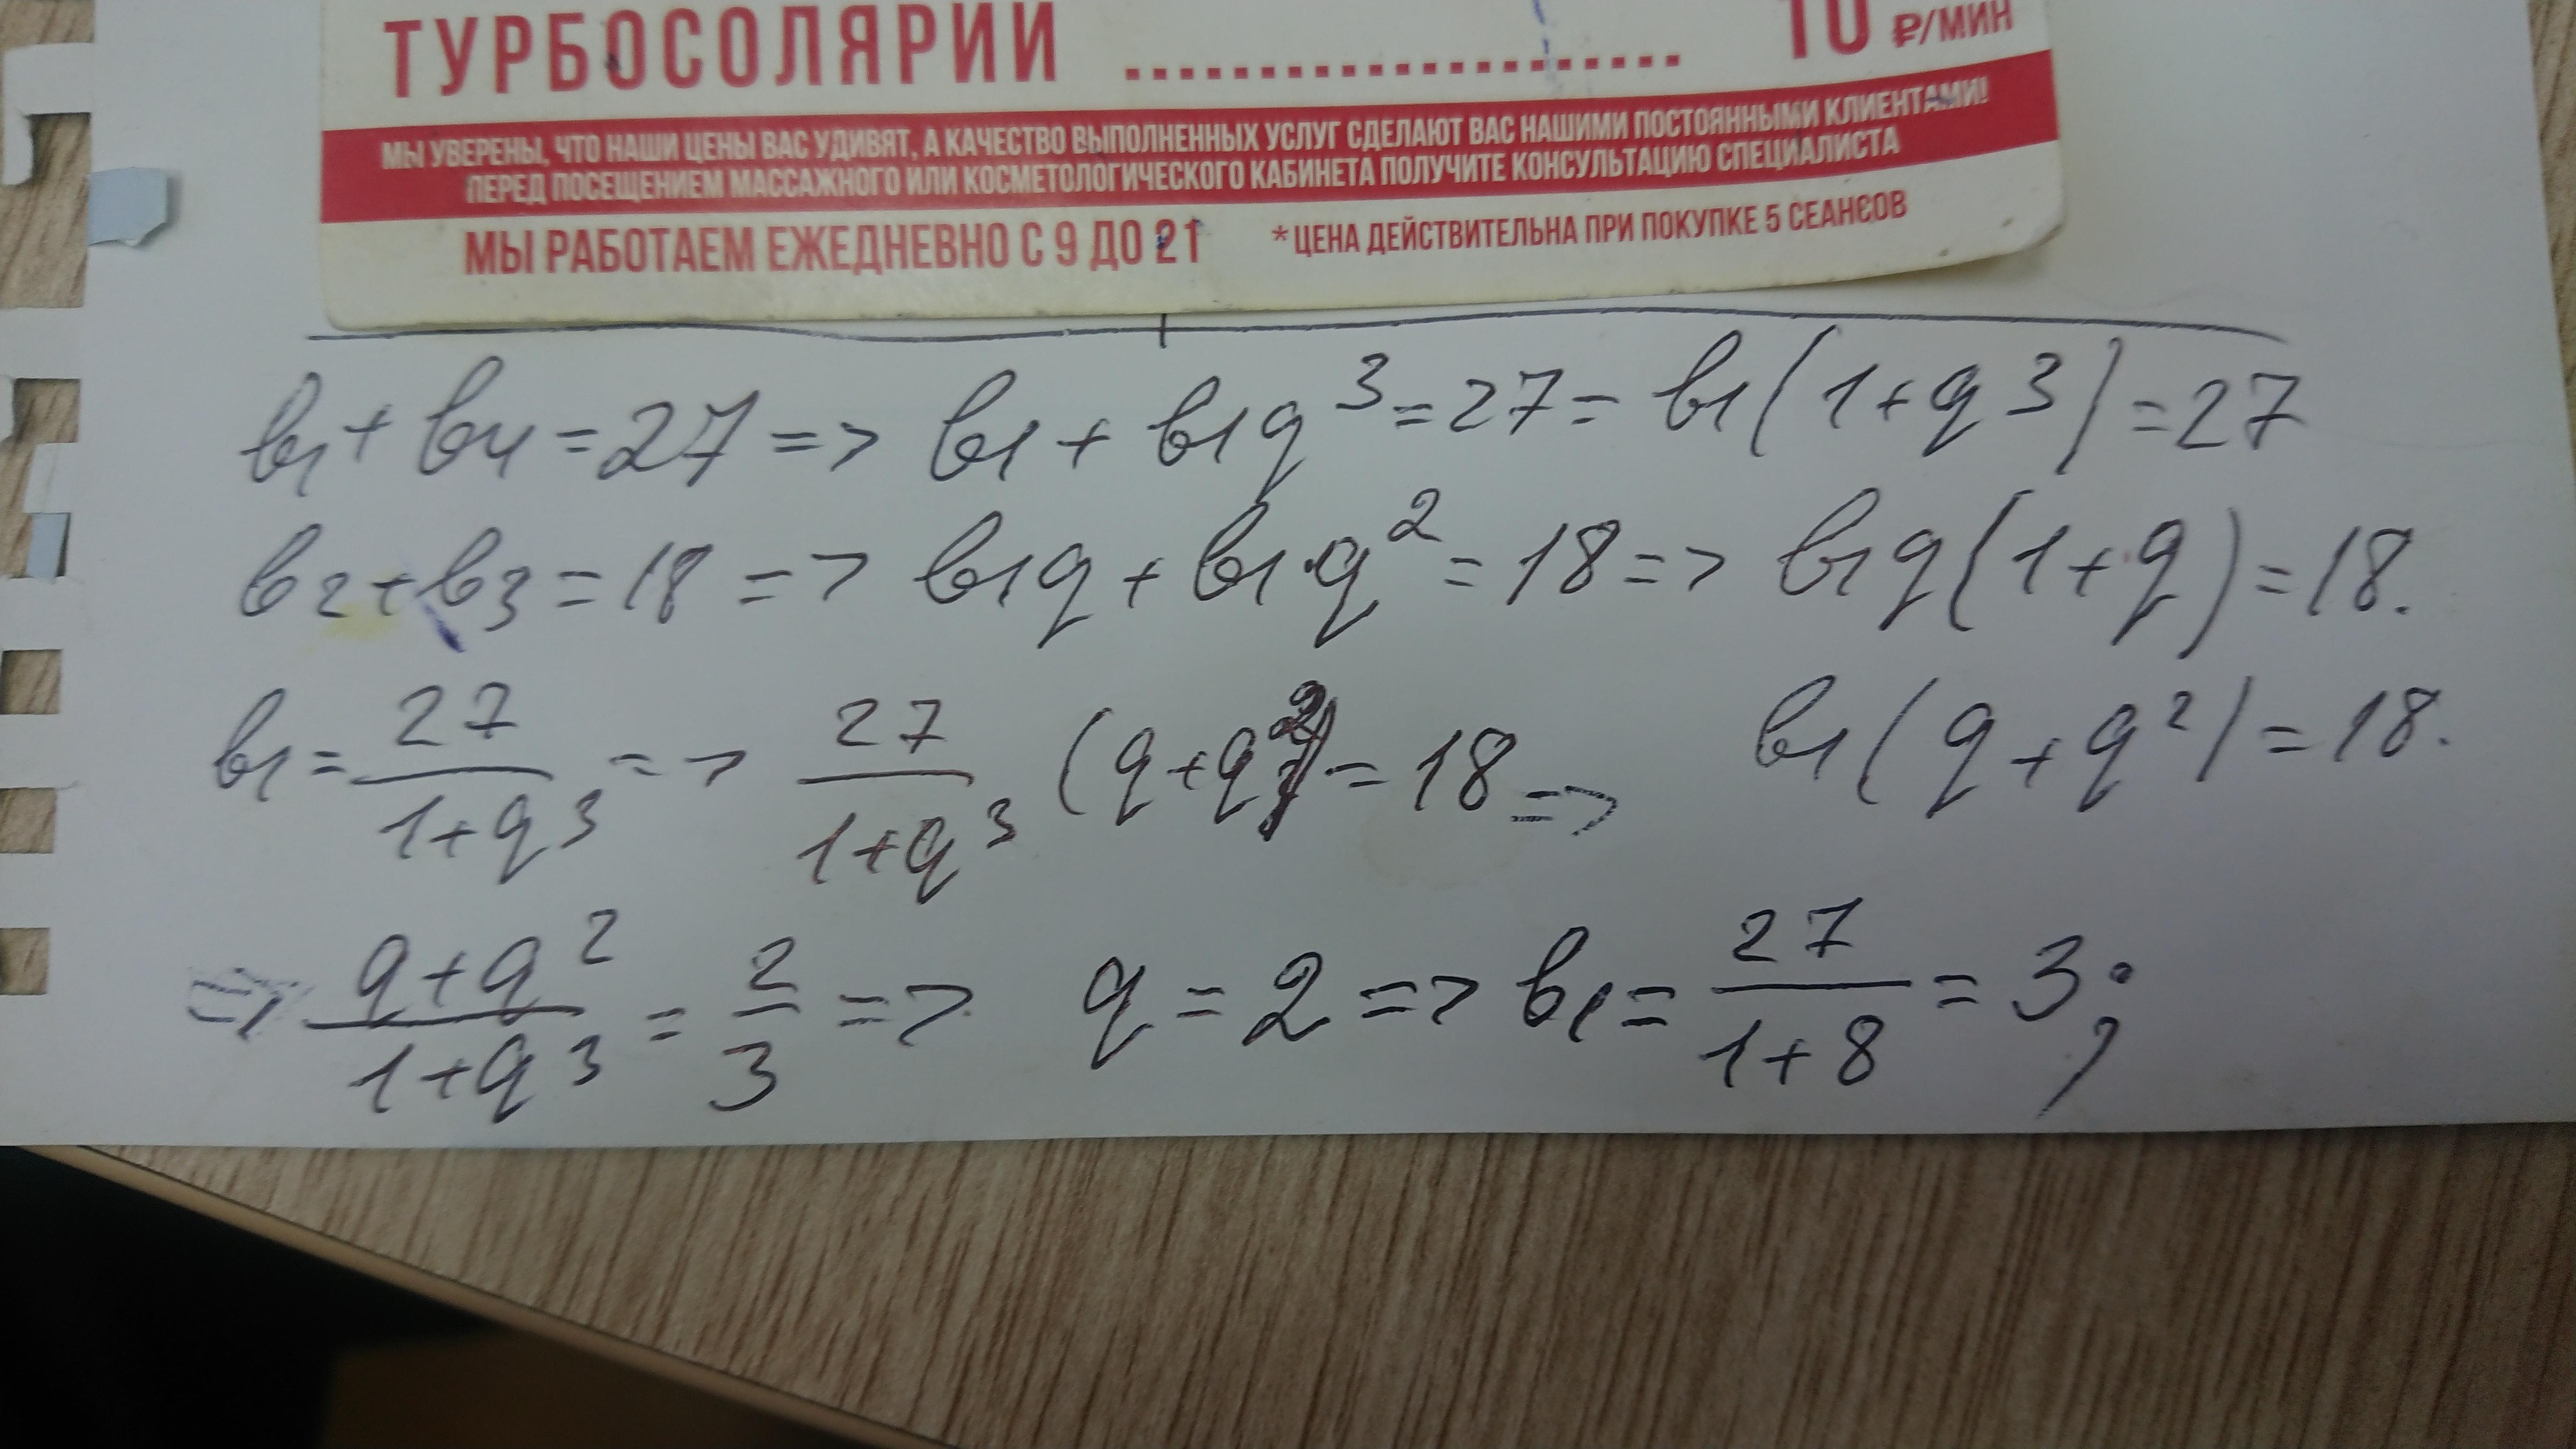 ТУРБОСОЛЯРИИ ........................ 10 ₽/МИН
МЫ УВЕРЕНЫ, ЧТО НАШИ ЦЕНЫ ВАС УДИВЯТ, А КАЧЕСТВО ВЫПОЛНЕННЫХ УСЛУГ СДЕЛАЮТ ВАС НАШИМИ ПОСТОЯННЫМИ КЛИЕНТАМИ!
ПЕРЕД ПОСЕЩЕНИЕМ МАССАЖНОГО ИЛИ КОСМЕТОЛОГИЧЕСКОГО КАБИНЕТА ПОЛУЧИТЕ КОНСУЛЬТАЦИЮ СПЕЦИАЛИСТА
МЫ РАБОТАЕМ ЕЖЕДНЕВНО С 9 ДО 21 *ЦЕНА ДЕЙСТВИТЕЛЬНА ПРИ ПОКУПКЕ 5 СЕАНСОВ
b₁ + b₄ = 27 => b₁ + b₁q³ = 27 = b₁(1+q³) = 27
b₂ + b₃ = 18 => b₁q + b₁·q² = 18 => b₁q(1+q) = 18.
b₁ = 27/(1+q³) => 27/(1+q³) (q+q²) = 18 => b₁(q+q²) = 18.
=> (q+q²)/(1+q³) = 2/3 => q = 2 => b₁ = 27/(1+8) = 3;